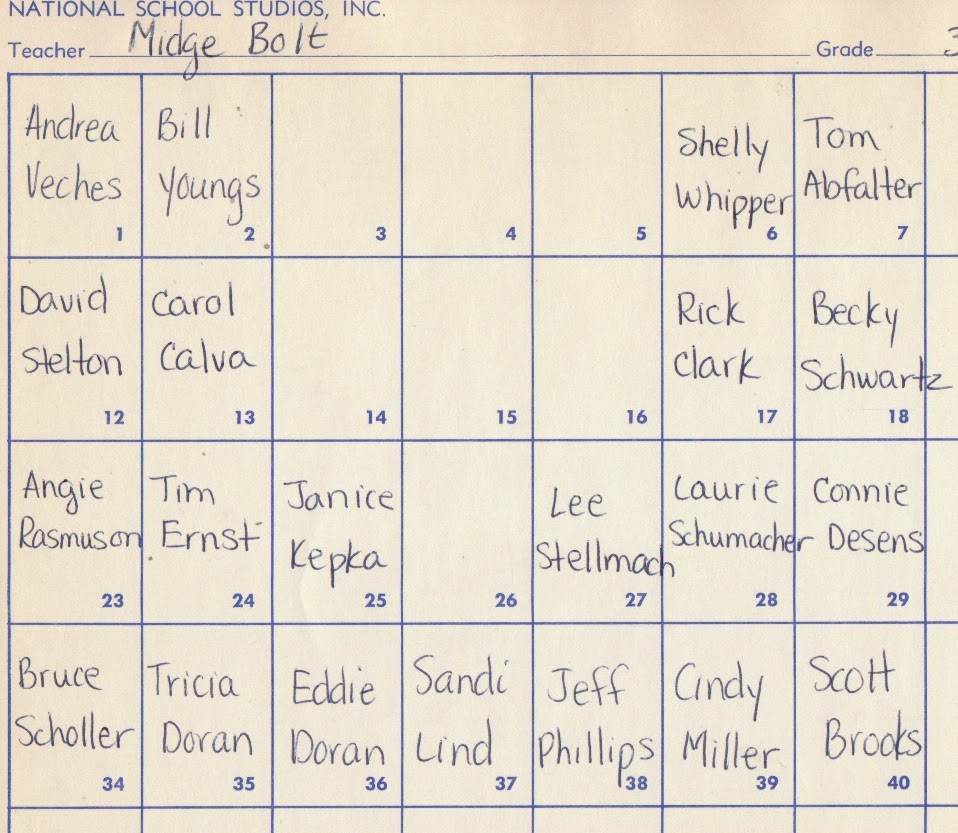 NATIONAL SCHOOL STUDIOS, INC.
Teacher Midge Bolt Grade 3
Andrea Veches 1
Bill Youngs 2
3
4
5
Shelly Whipper 6
Tom Abfalter 7
David Stelton 12
Carol Calva 13
14
15
16
Rick Clark 17
Becky Schwartz 18
Angie Rasmuson 23
Tim Ernst 24
Janice Kepka 25
26
Lee Stellmach 27
Laurie Schumacher 28
Connie Desens 29
Bruce Scholler 34
Tricia Doran 35
Eddie Doran 36
Sandi Lind 37
Jeff Phillips 38
Cindy Miller 39
Scott Brooks 40